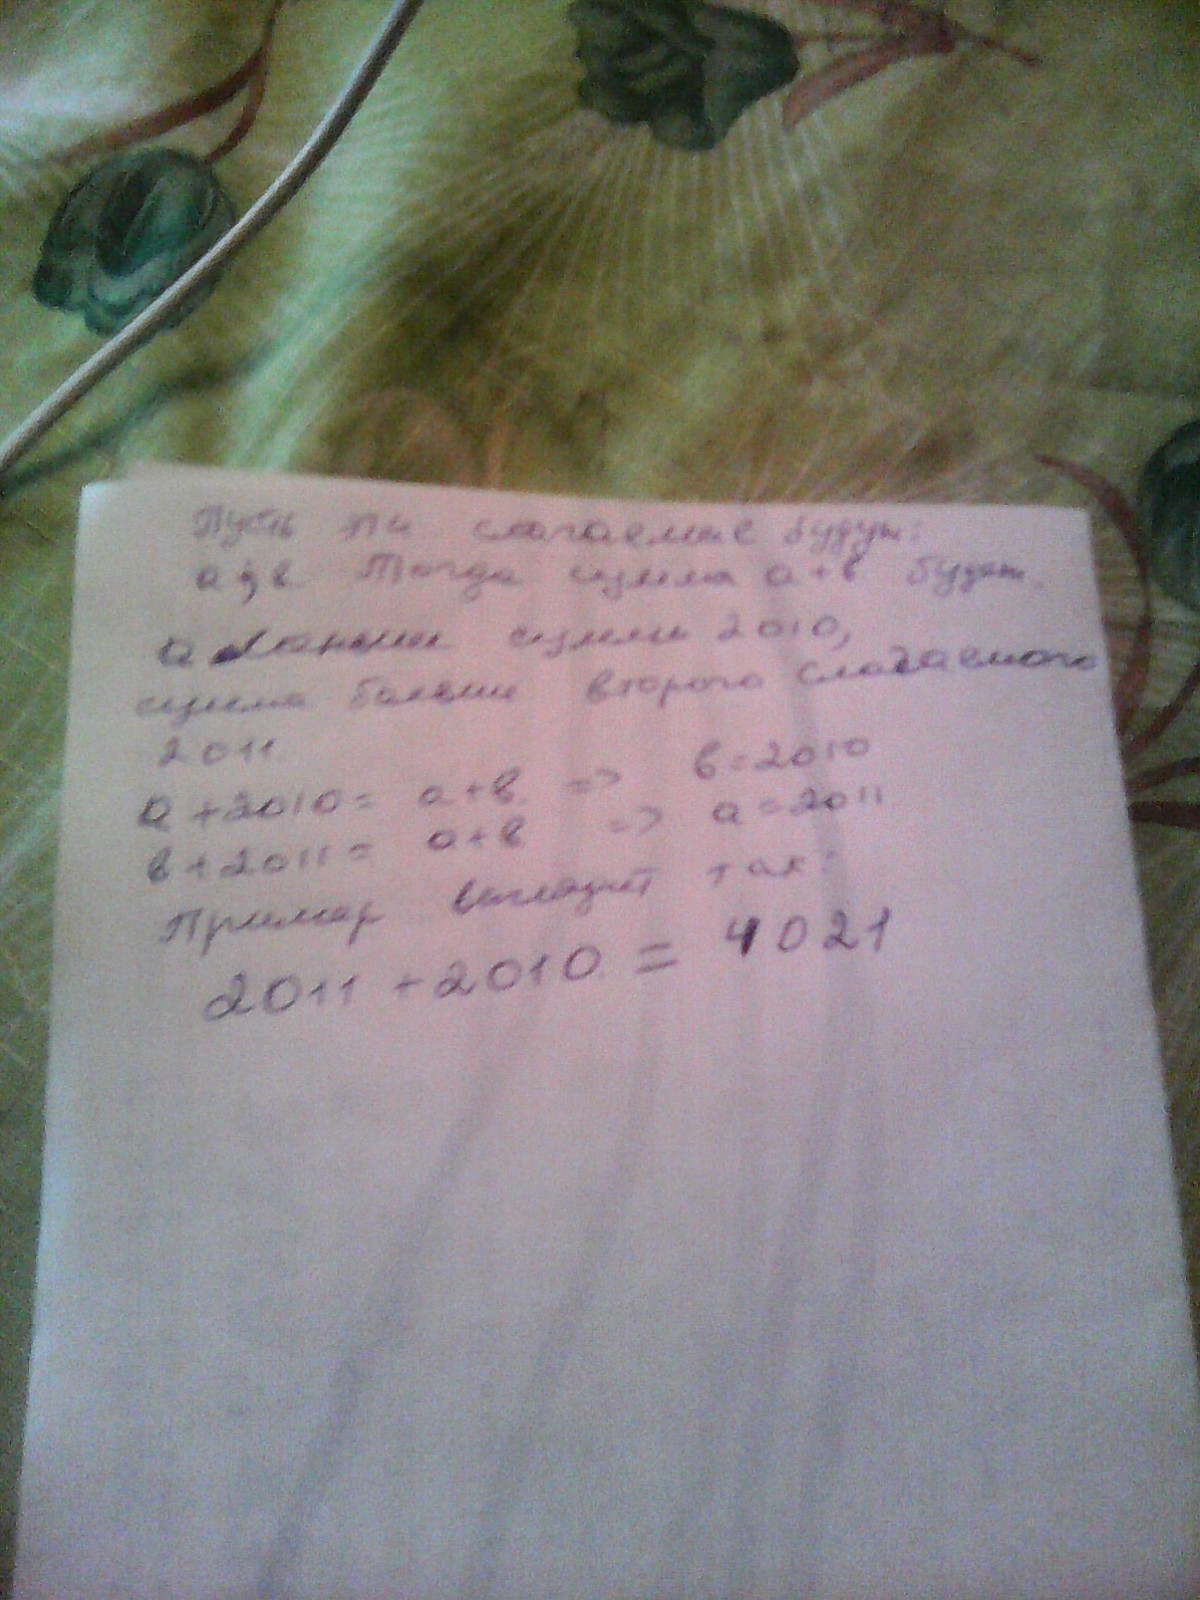 Пусть эти слагаемые будут:
а и в. Тогда сумма а+в будет.
а меньше суммы 2010,
сумма больше второго слагаемого
2011.
а+2010= а+в => в=2010
в+2011= а+в => а=2011
Пример выглядит так:
2011+2010=4021